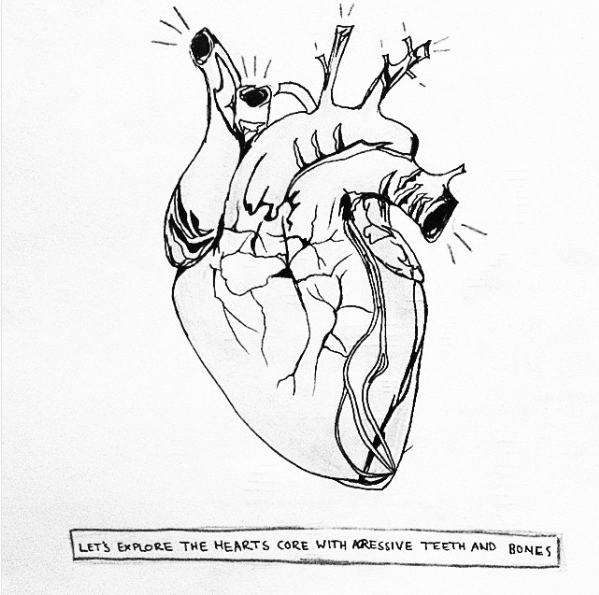 LET'S EXPLORE THE HEARTS CORE WITH AGRESSIVE TEETH AND BONES